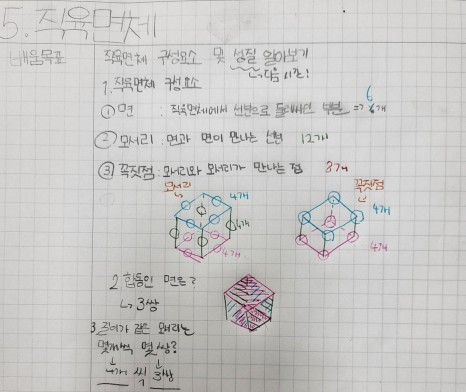 5. 직육면체
배움목표
직육면체 구성요소 및 성질 알아보기
↳다음 시간!
1. 직육면체 구성요소
① 면 : 직육면체에서 선분으로 둘러싸인 부분 => 6개
6
② 모서리 : 면과 면이 만나는 선분 12개
③ 꼭짓점 : 모서리와 모서리가 만나는 점 8개
모서리
4개
4개
4개
꼭짓점
4개
4개
2. 합동인 면은?
↳ 3쌍
3. 길이가 같은 모서리는
몇개씩 몇쌍?
4개 씩 3쌍